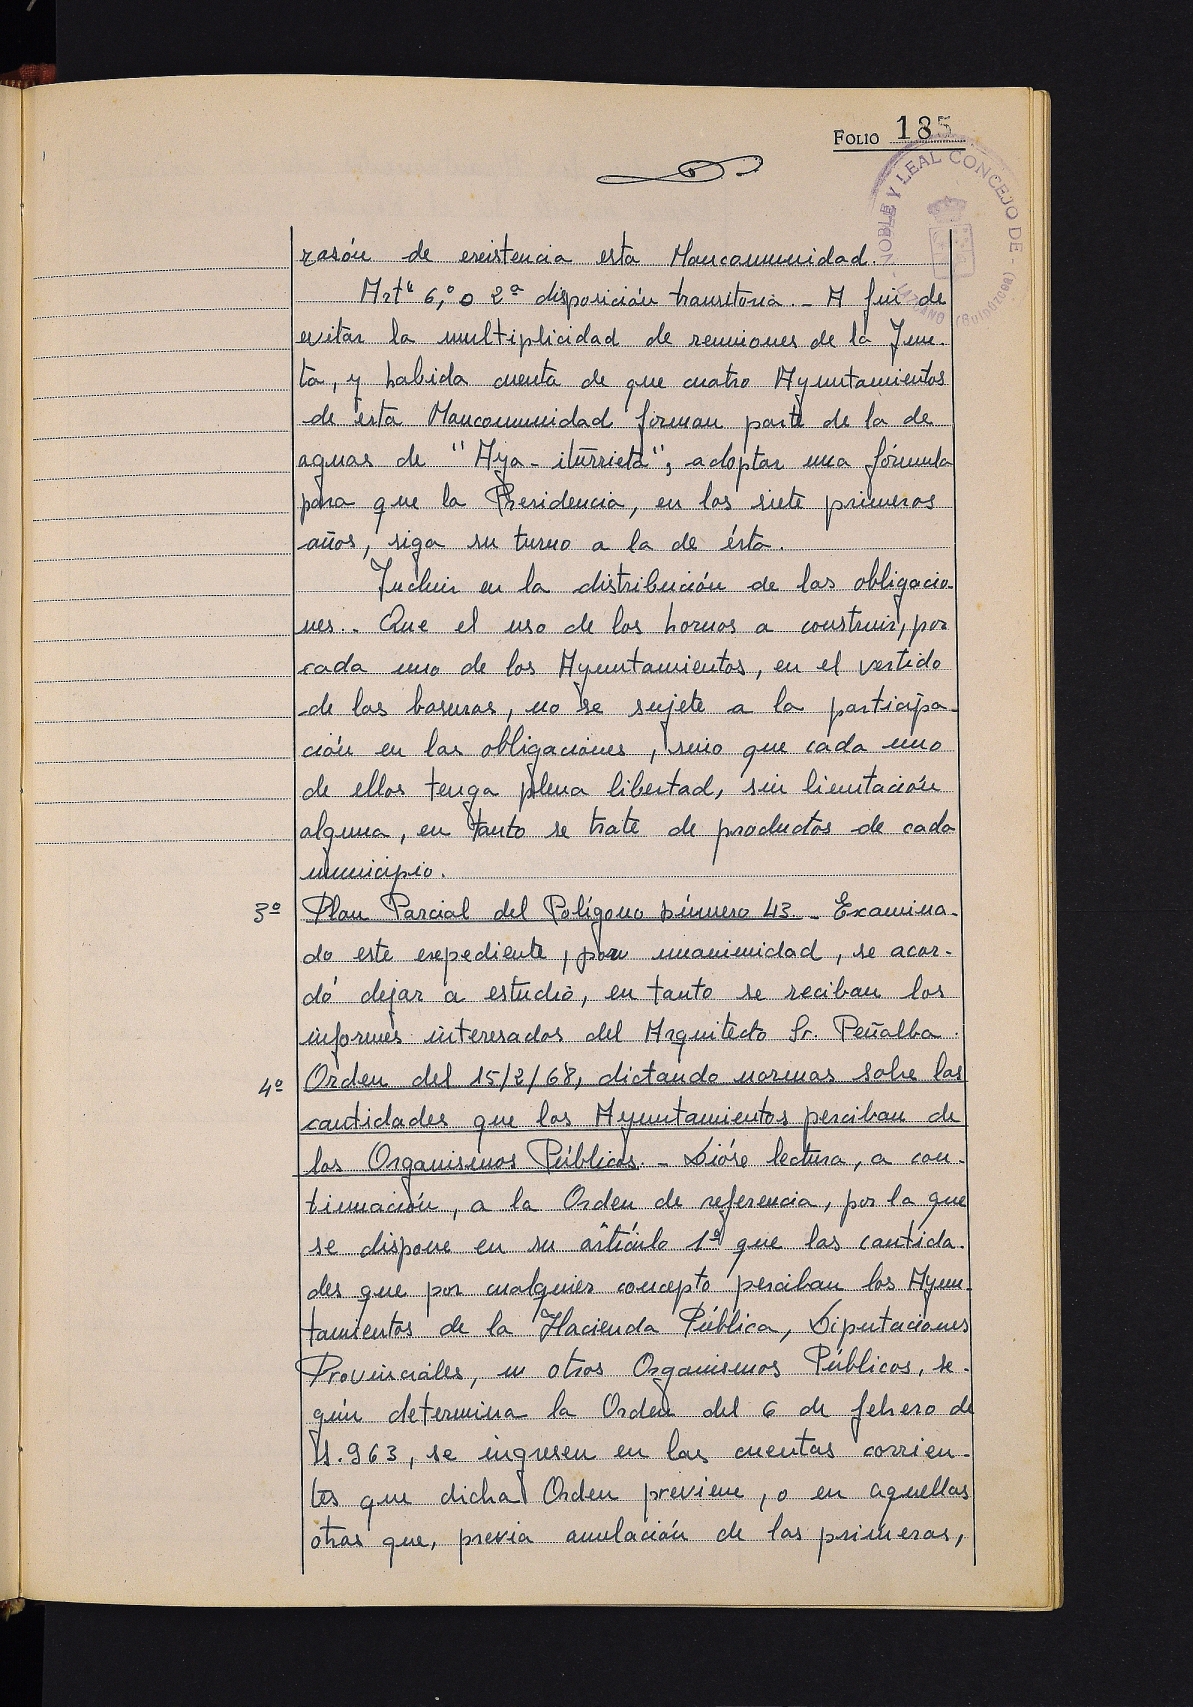 FOLIO 185
NOBLE Y LEAL CONCEJO DE
(GUIPUZCOA)
razón de existencia esta Mancomunidad.
Artº 6,º o 2ª disposición transitoria.- A fin de
evitar la multiplicidad de reuniones de la Jun-
ta, y habida cuenta de que cuatro Ayuntamientos
de esta Mancomunidad forman parte de la de
aguas de "Aya-iturrieta", adoptar una fórmula
para que la Presidencia, en los siete primeros
años, siga su turno a la de ésta.
Incluir en la distribución de las obligacio-
nes.. Que el uso de los hornos a construir, por
cada uno de los Ayuntamientos, en el vertido
de las basuras, no se sujete a la participa-
ción en las obligaciones, sino que cada uno
de ellos tenga plena libertad, sin limitación
alguna, en tanto se trate de productos de cada
municipio.
3º Plan Parcial del Polígono número 43.- Examina-
do este expediente, por unanimidad, se acor-
dó dejar a estudio, en tanto se reciban los
informes interesados del Arquitecto Sr. Peñalba.
4º Orden del 15/2/68, dictando normas sobre las
cantidades que los Ayuntamientos perciban de
los Organismos Públicos.- Dióse lectura, a con-
tinuación, a la Orden de referencia, por la que
se dispone en su artículo 1º que las cantida-
des que por cualquier concepto perciban los Ayun-
tamientos de la Hacienda Pública, Diputaciones
Provinciales, u otros Organismos Públicos, se-
gún determina la Orden del 6 de febrero de
1.963, se ingresen en las cuentas corrien-
tes que dicha Orden previene, o en aquellas
otras que, previa anulación de las primeras,